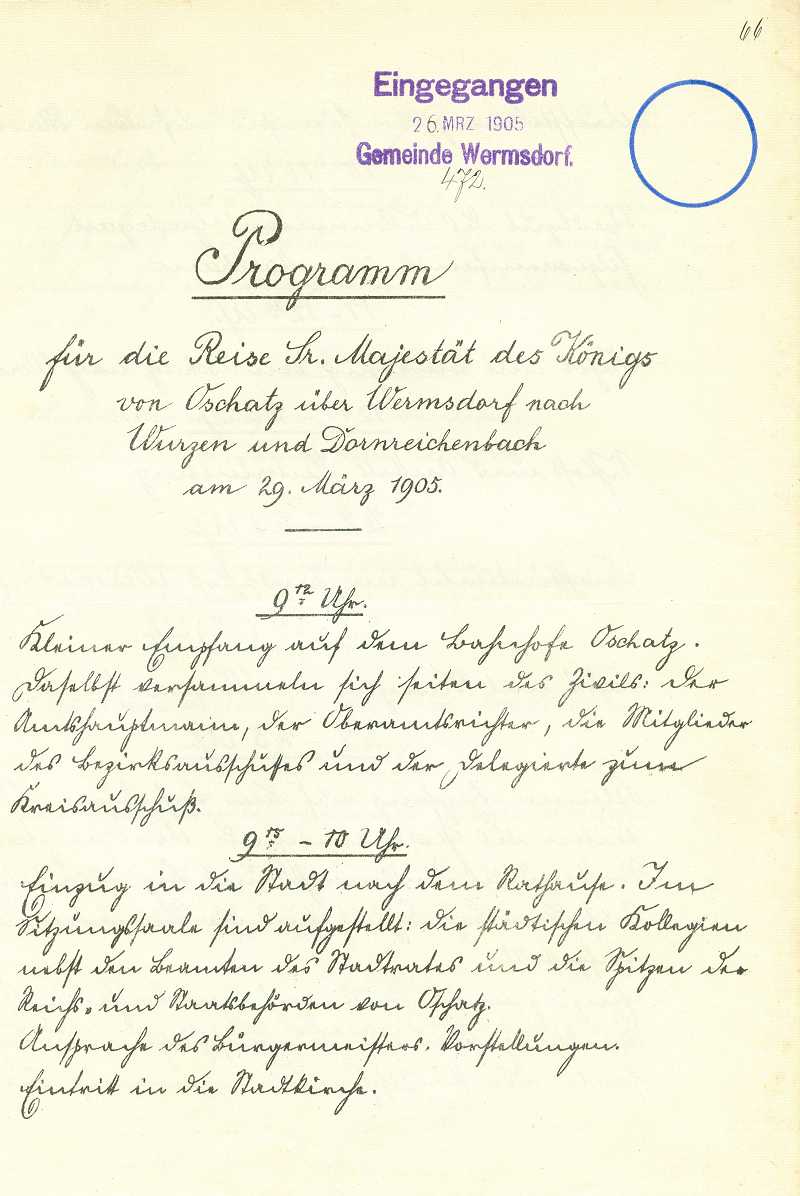 66
Eingegangen
26. MRZ 1905
Gemeinde Wermsdorf.
472.
Programm
für die Reise Sr. Majestät des Königs
von Oschatz über Wermsdorf nach
Wurzen und Dornreichenbach
am 29. März 1905.
9 12 Uhr.
Kleiner Empfang auf dem Bahnhofe Oschatz.
Daselbst versammeln sich seiten des Zivils: der
Amtshauptmann, der Oberamtsrichter, die Mitglieder
des Bezirksausschusses und der Delegierte zum
Kreisausschuß.
9 15 – 10 Uhr.
Einzug in die Stadt nach dem Rathause. Im
Sitzungssaale sind aufgestellt: die städtischen Kollegien
nebst den Beamten des Stadtrates und die Spitzen der
Reichs- und Staatsbehörden von Oschatz.
Ansprache des Bürgermeisters. Vorstellungen.
Eintritt in die Stadtkirche.